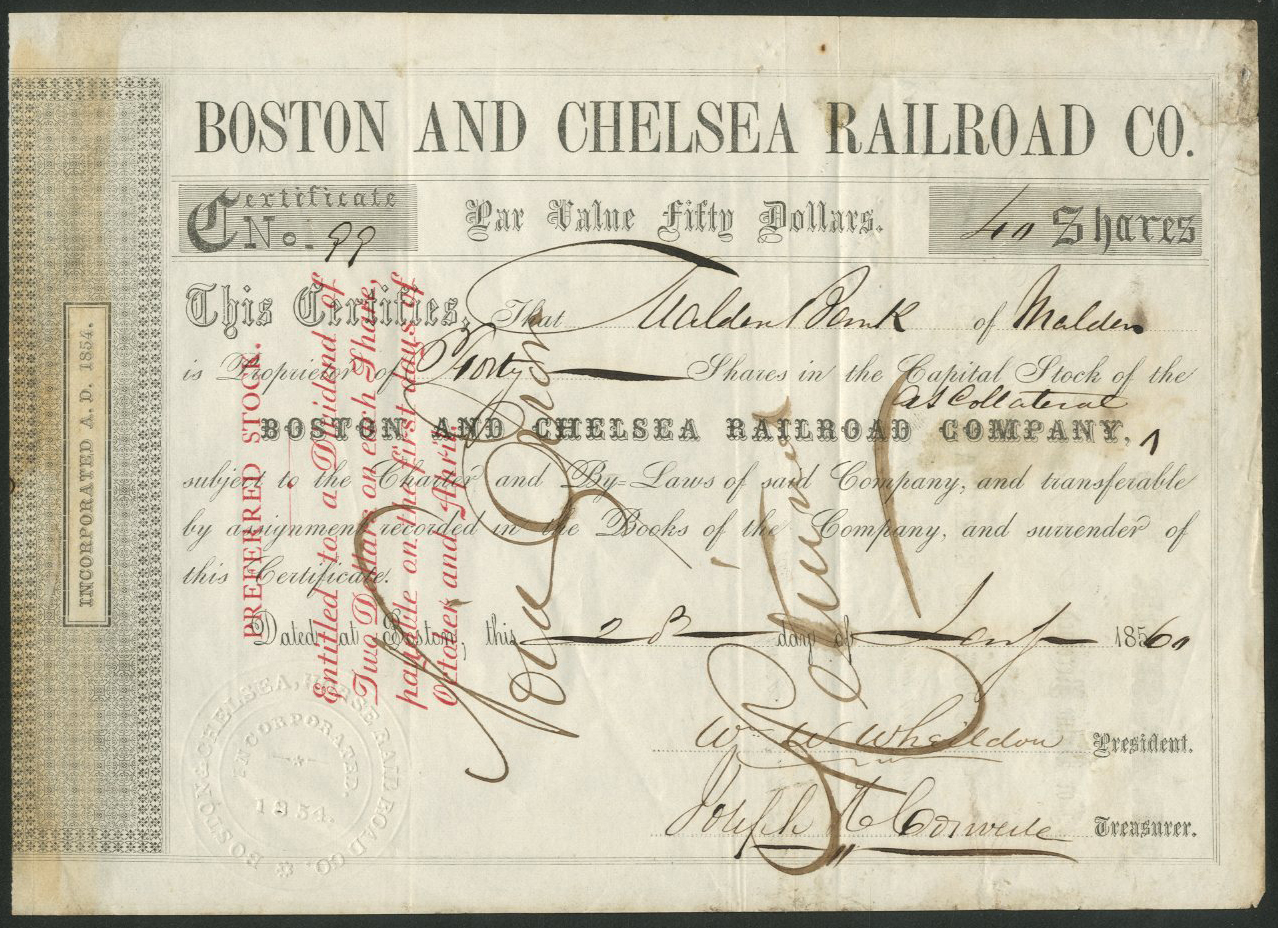 BOSTON AND CHELSEA RAILROAD CO.
Certificate No. 99
Par Value Fifty Dollars.
40 Shares
This Certifies, That Malden Bank of Malden
is Proprietor of Forty Shares in the Capital Stock of the
as Collateral
BOSTON AND CHELSEA RAILROAD COMPANY,
subject to the Charter and By-Laws of said Company, and transferable
by assignment recorded in the Books of the Company, and surrender of
this Certificate.
Dated at Boston, this 28 day of 1860
W. W. Wheildon President.
Joseph H. Converse Treasurer.
INCORPORATED A. D. 1854.
PREFERRED STOCK.
Entitled to a Dividend of
Two Dollars on each Share,
payable on the first days of
October and April.
BOSTON & CHELSEA, HORSE RAIL ROAD CO.
INCORPORATED.
1854.